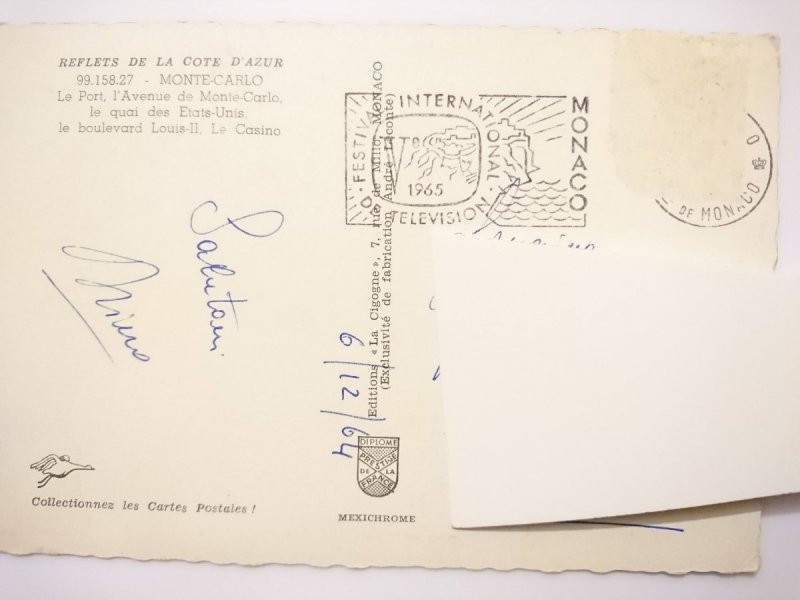 REFLETS DE LA COTE D'AZUR
99.158.27 - MONTE-CARLO
Le Port, l'Avenue de Monte-Carlo,
le quai des Etats-Unis,
le boulevard Louis-II, Le Casino
FESTIVAL INTERNATIONAL
1965
D TELEVISION
MONACO
DE MONACO
Editions « La Cigogne », 7, rue de Millo, MONACO
(Exclusivité de fabrication André Leconte)
Salutoni
6/12/64
DIPLOME
PRESTIGE
DE LA
FRANCE
MEXICHROME
Collectionnez les Cartes Postales !